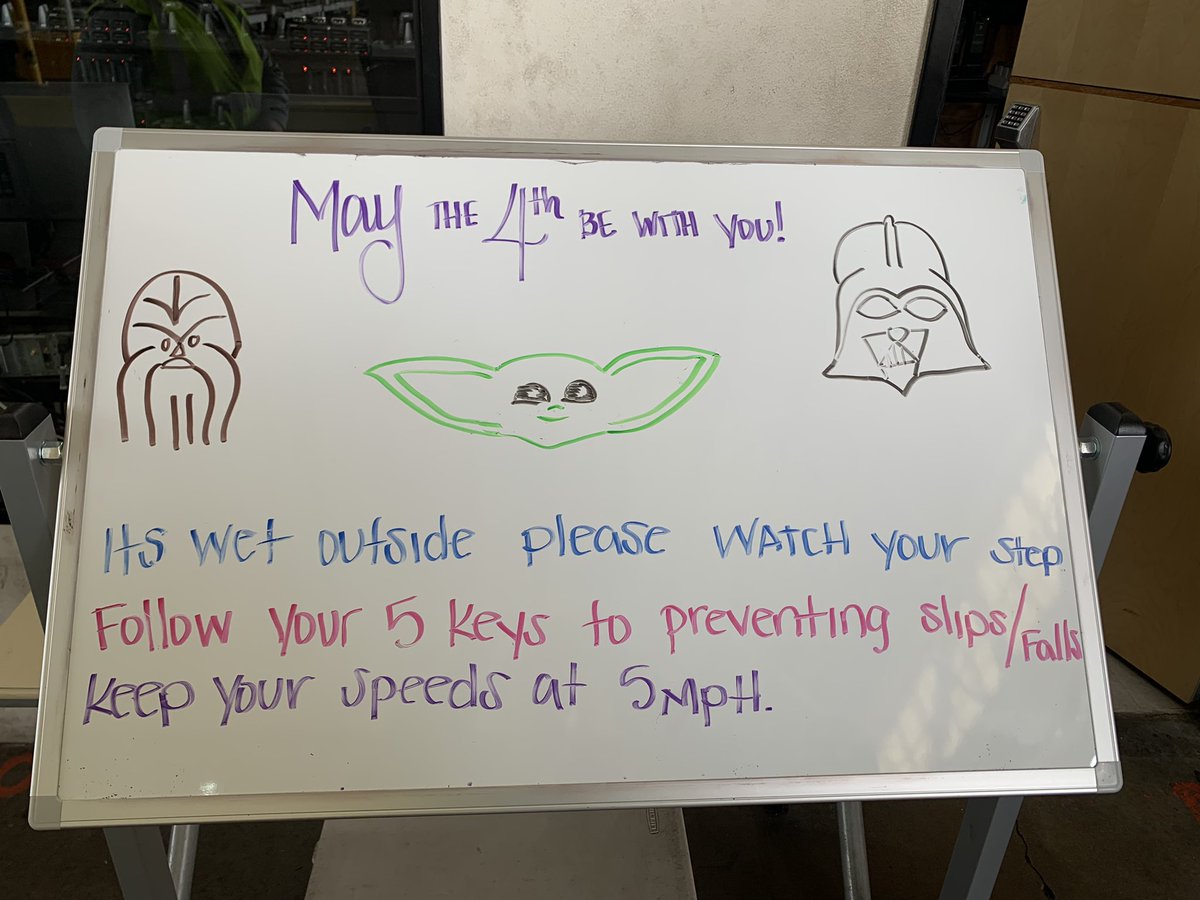 May THE 4th BE WITH YOU!
Its wet outside please WATCH your step
Follow your 5 keys to preventing slips/Falls
Keep your speeds at 5MpH.